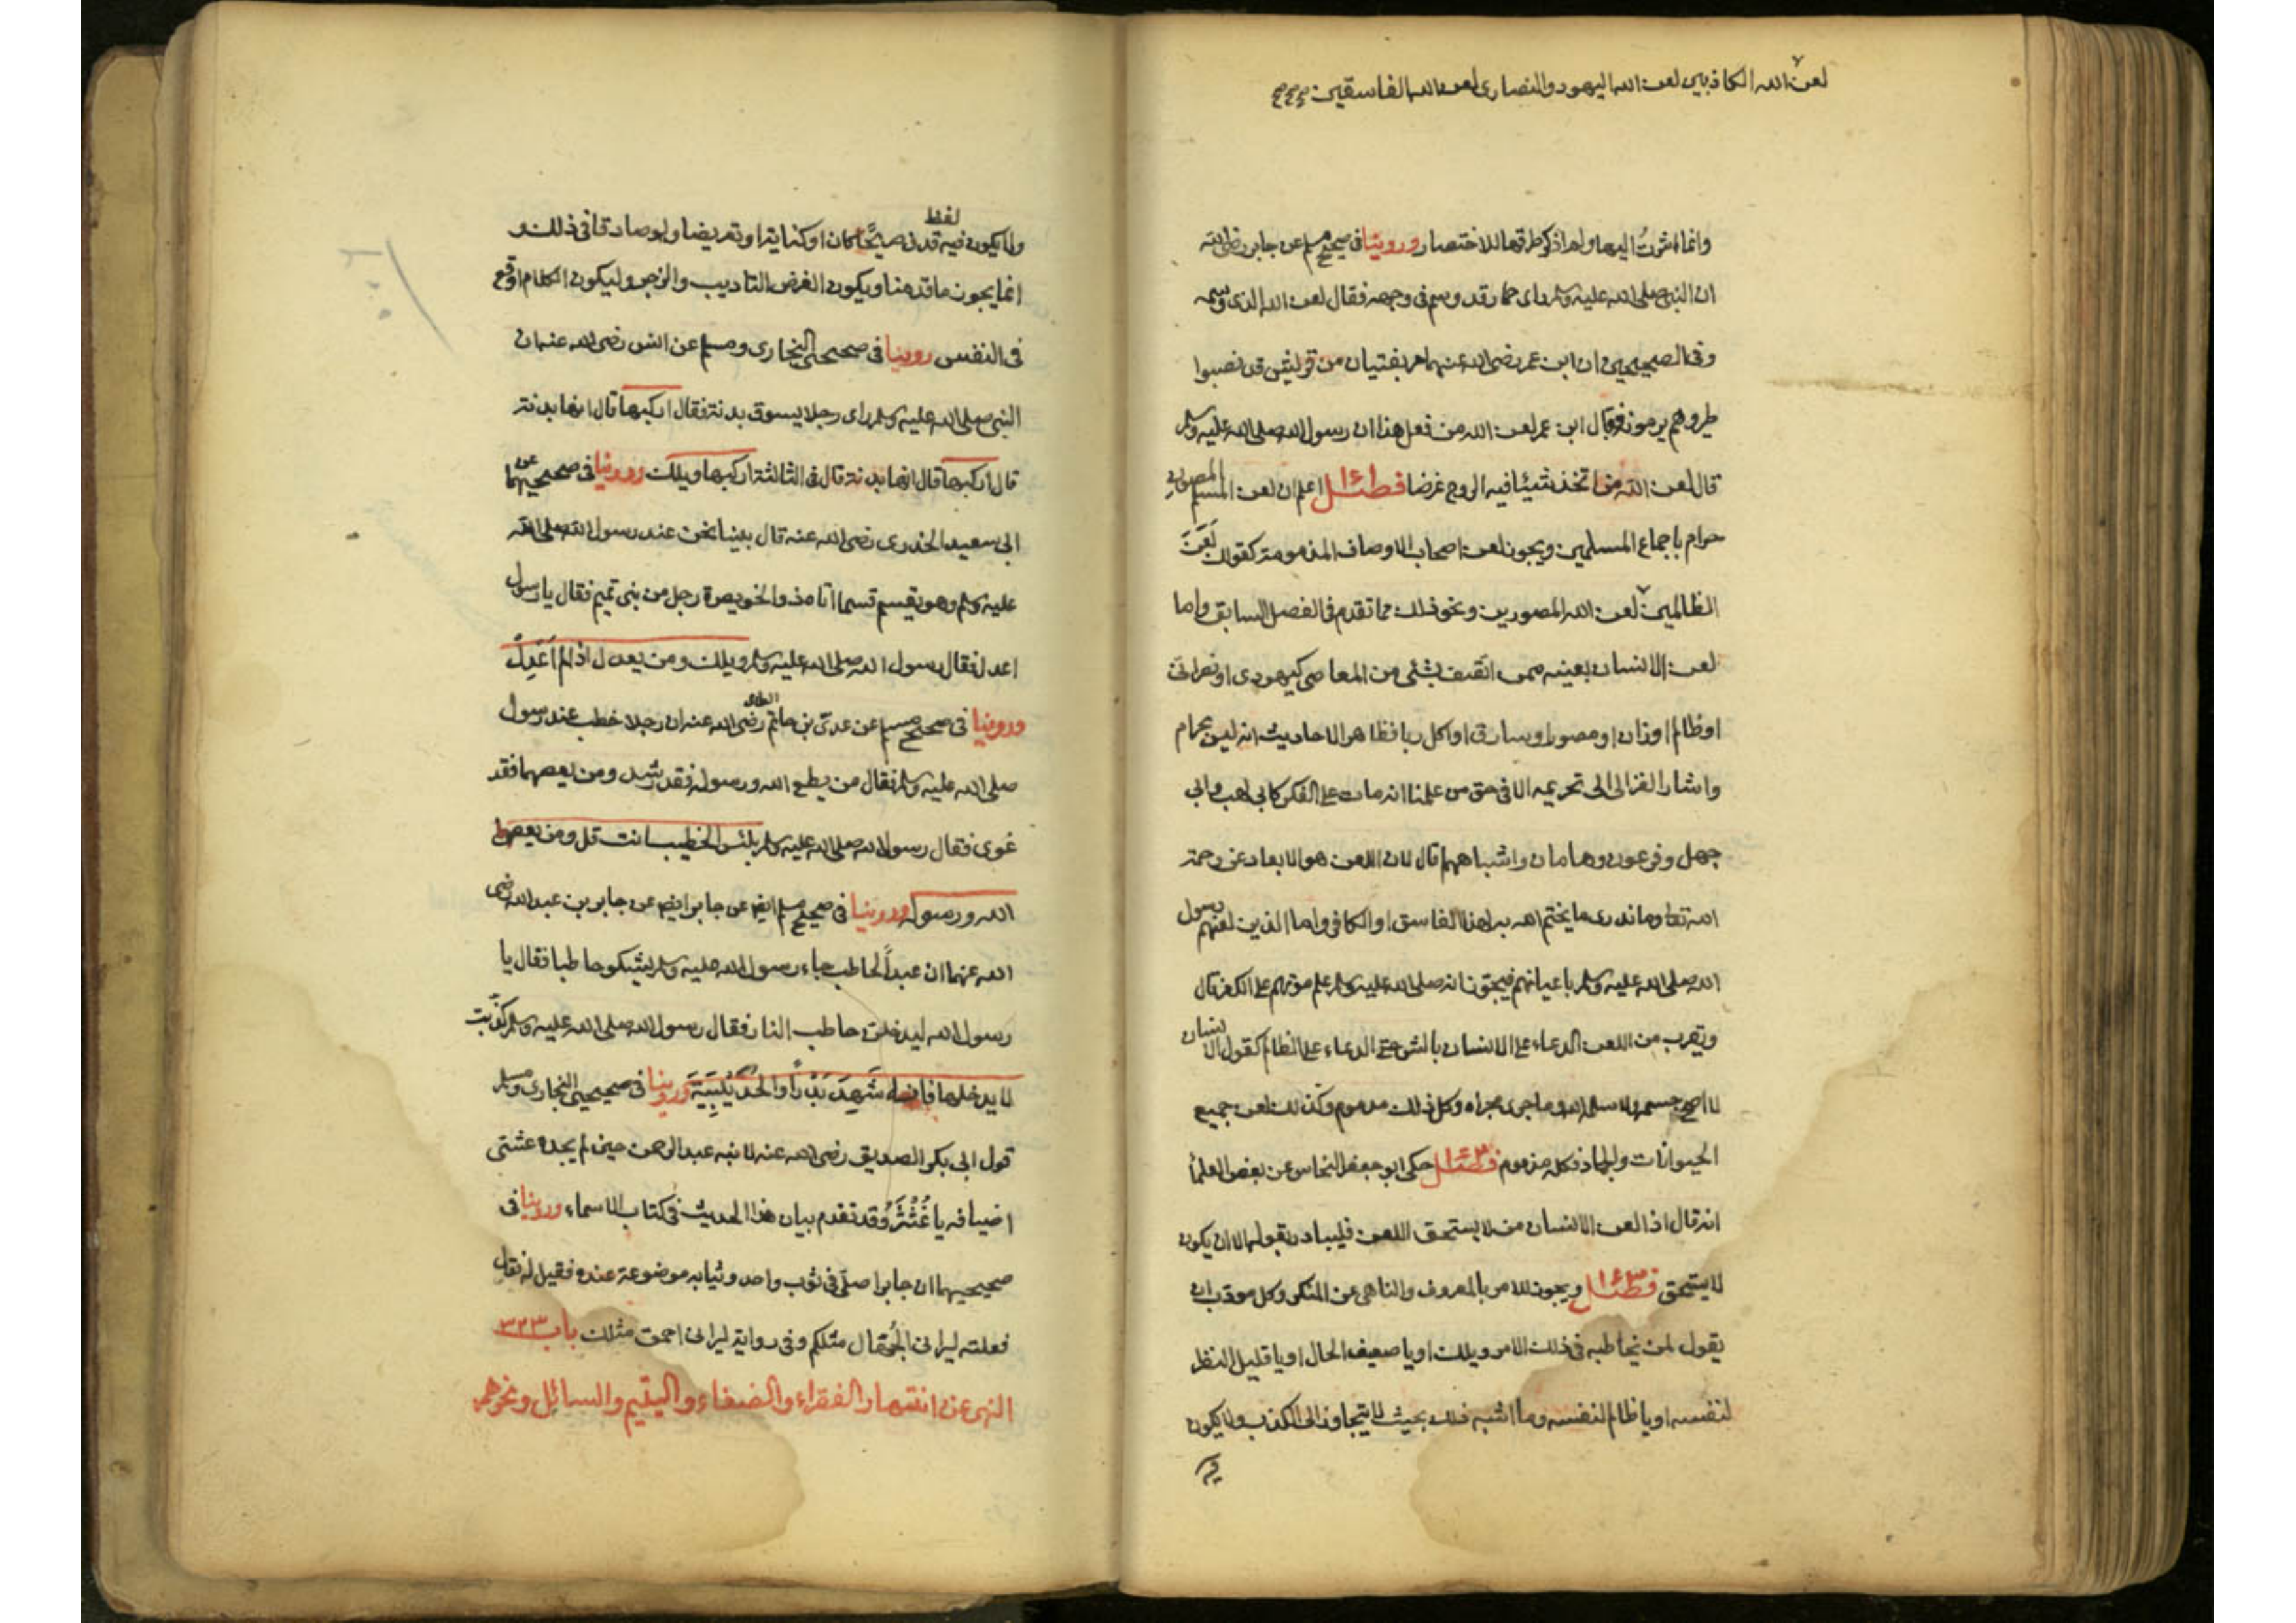 لعن الله الكاذبين لعن الله اليهود والنصارى لعن الله الفاسقين صح صح صح
وانما اشرت اليها ولم اذكر طرقها للاختصار وروينا في صحيح مسلم عن جابر رضي الله
ان النبي صلى الله عليه وسلم راى حمار قد وسم في وجهه فقال لعن الله الذي وسمه
وفي الصحيحين ان ابن عمر رضي الله عنهما مر بفتيان من قريش قد نصبوا
طير وهم يرمونه فقال ابن عمر لعن الله من فعل هذا ان رسول الله صلى الله عليه وسلم
قال لعن الله من اتخذ شيئا فيه الروح غرضا فصل اعلم ان لعن المسلم المصون
حرام باجماع المسلمين ويجوز لعن اصحاب الاوصاف المذمومة كقولك لَعَنَ
الظالمين لعن الله المصورين ونحو ذلك مما تقدم في الفصل السابق واما
لعن الانسان بعينه ممن اتصف بشئ من المعاصي كيهودي او نصراني
او ظالم او زان او مصور او سارق او اكل ربا فظاهر الاحاديث انه ليس بحرام
واشار الغزالي الى تحريمه الا في حق من علمنا انه مات على الكفر كابي لهب وابي
جهل وفرعون وهامان واشباههم قال لان اللعن هو الابعاد عن رحمة
الله تعا وما ندرى ما يختم الله به لهذا الفاسق او الكافر واما الذين لعنهم رسول
الله صلى الله عليه وسلم باعيانهم فيجوز انه صلى الله عليه وسلم علم موتهم على الكفر قال
ويقرب من اللعن الدعاء على الانسان بالشر حتى الدعاء على الظالم كقول الانسان
لا اصح جسمه ولا سلمه الله وما جرى مجراه وكل ذلك مذموم وكذلك لعن جميع
الحيوانات والجماد فكله مذموم فصل حكى ابو جعفر النحاس عن بعض العلمأ
انه قال اذا لعن الانسان من لا يستحق اللعن فليبادر بقوله الا ان يكون
لا يستحق فصل ويجوز للامر بالمعروف والناهي عن المنكر وكل مودب ان
يقول لمن يخاطبه في ذلك الامر ويلك او يا ضعيف الحال او يا قليل النظر
لنفسه او يا ظالم لنفسه وما اشبه ذلك بحيث لا يتجاوز الى الكذب ولا يكون
فيه
ولا يكون فيه لفظ قذف صريحًا كان او كناية او تعريضا ولو صادقا في ذلك و
انما يجوز ما قدمنا ويكون الغرض التاديب والزجر وليكون الكلام اوقع
في النفس روينا في صحيحي البخارى ومسلم عن انس رضى الله عنه ان
النبي صلى الله عليه وسلم راى رجلا يسوق بدنة فقال اركبها قال انها بدنة
قال اركبها قال انها بدنة قال في الثالثة اركبها ويلك وروينا في صحيحيهما عن
ابي سعيد الخدرى رضى الله عنه قال بينا نحن عند رسول الله صلى الله
عليه وسلم وهو يقسم قسما اتاه ذو الخويصرة رجل من بنى تميم فقال يا رسول
اعدل فقال رسول الله صلى الله عليه وسلم ويلك ومن يعدل اذا لم اَعْدِلْ
وروينا في صحيح مسلم عن عدىّ بن حاتم الطائى رضى الله عنه ان رجلا خطب عند رسول
صلى الله عليه وسلم فقال من يطع الله ورسوله فقد رشد ومن يعصهما فقد
غوى فقال رسول الله صلى الله عليه وسلم بئس الخطيب انت قل ومن يعص
الله ورسوله وروينا في صحيح مسلم ايضا عن جابر ايضا عن جابر بن عبد الله رضى
الله عنهما ان عبداً لحاطب جاء رسول الله عليه وسلم يشكو حاطبا فقال يا
رسول الله ليدخلن حاطب النار فقال رسول الله صلى الله عليه وسلم كذّبت
لا يدخلها فانه شَهِدَ بَدْراً والحُدَيْبِيَةَ وروينا في صحيحي البخارى ومسلم
قول ابي بكر الصديق رضى الله عنه لابنه عبد الرحمن حين لم يجده عشى
اضيافه يا غُنْثَرُ وقد تقدم بيان هذا الحديث في كتاب الاسماء وروينا في
صحيحيهما ان جابرا صلّى في ثوب واحد وثيابه موضوعة عنده فقيل له فقال
فعلته ليرانى الجُهّال مثلكم وفي رواية ليرانى احمق مثلك باب ٣٢٣
النهى عن انتهار الفقراء والضعفاء واليتيم والسائل ونحوهم